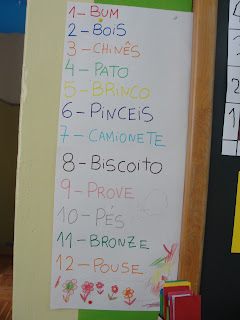 1 – BUM
2 – BOIS
3 – CHINÊS
4 – PATO
5 – BRINCO
6 – PINCEIS
7 – CAMIONETE
8 – BISCOITO
9 – PROVE
10 – PÉS
11 – BRONZE
12 – POUSE